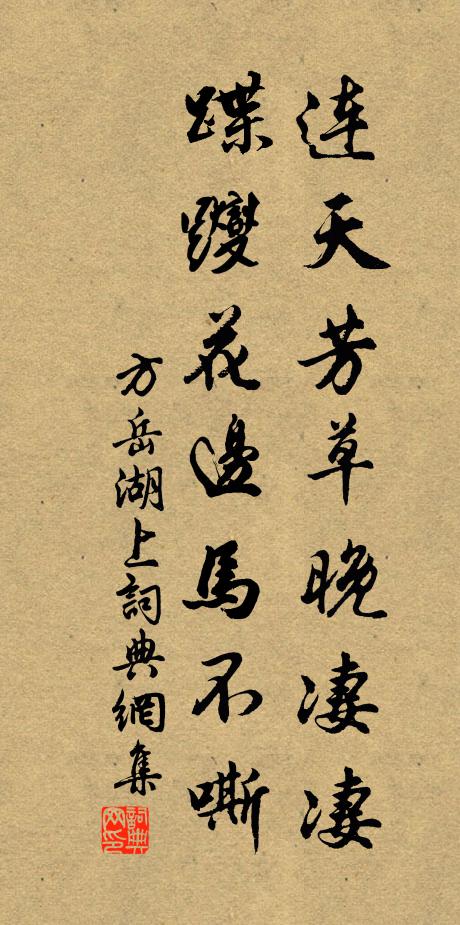 連天芳草晚淒淒
蹀躞花邊馬不嘶
方岳湖上詞典網集
詞典網印